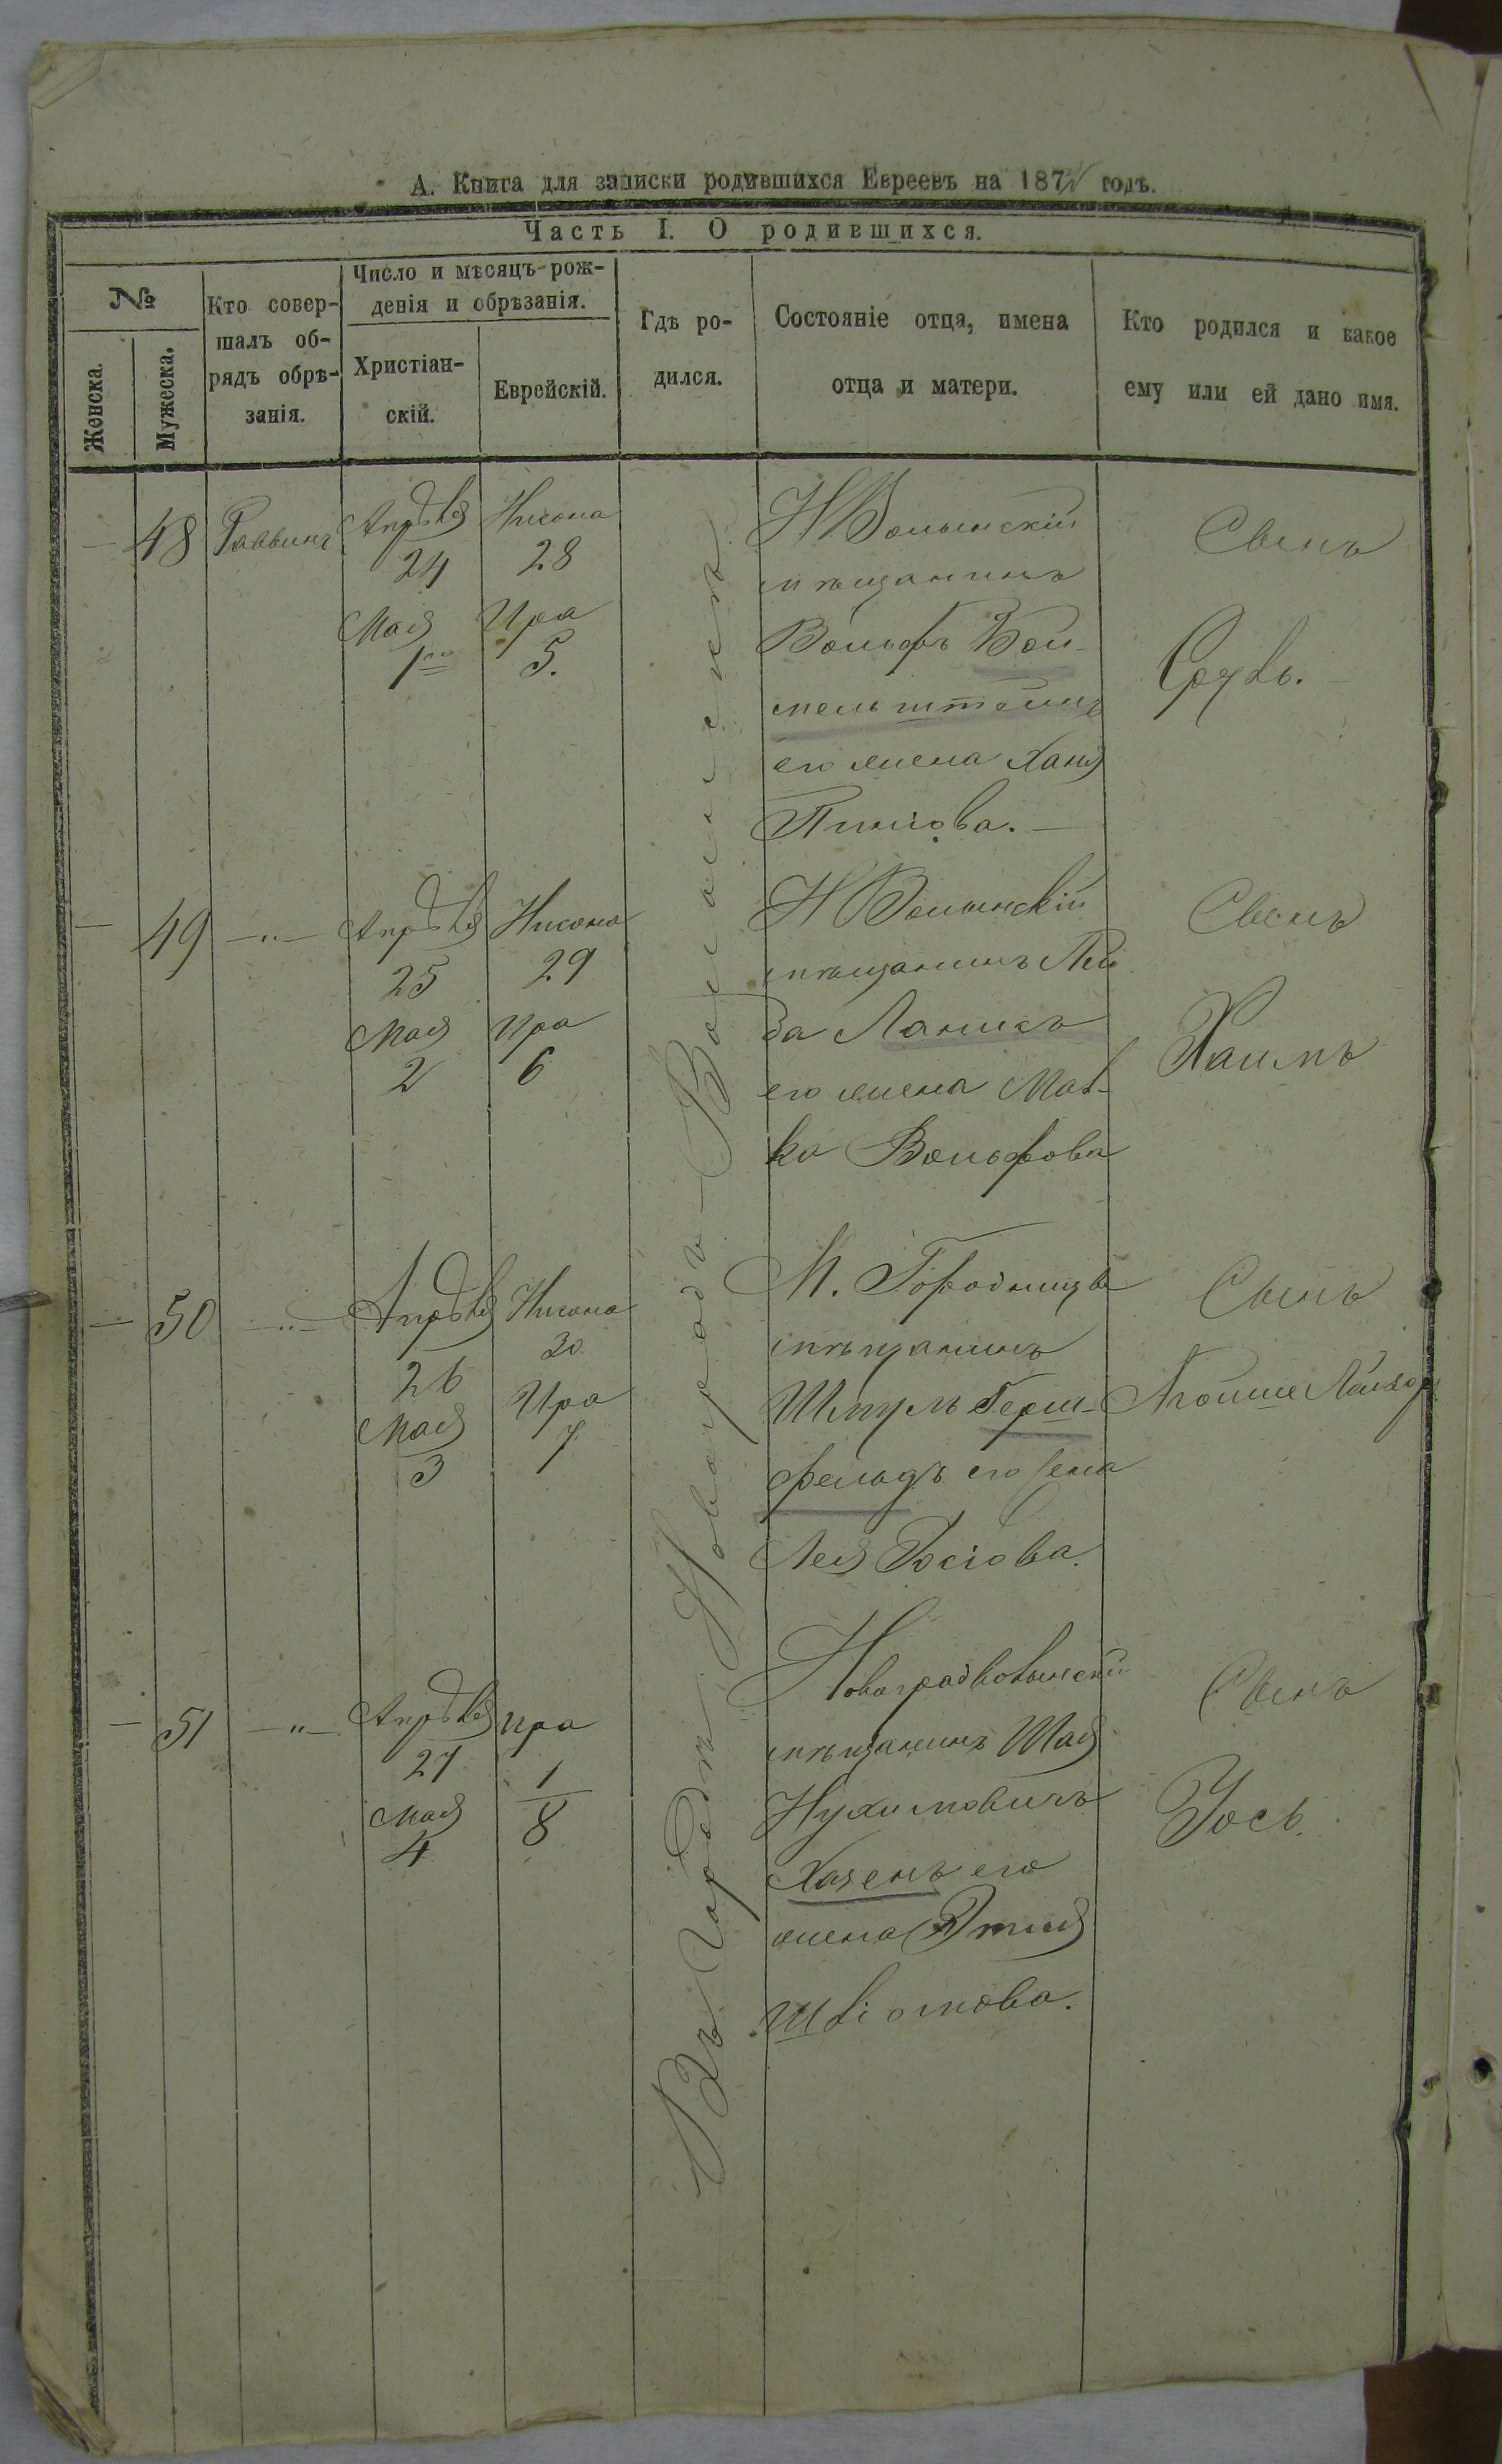 А. Книга для записки родившихся Евреевъ на 1872 годъ.
Часть I. О родившихся.
№
Женска.
Мужеска.
Кто совер-
шалъ об-
рядъ обрѣ-
занія.
Число и мѣсяцъ рож-
денія и обрѣзанія.
Христіан-
скій.
Еврейскій.
Гдѣ ро-
дился.
Состояніе отца, имена
отца и матери.
Кто родился и какое
ему или ей дано имя.
— 48
Раввинъ
Апрѣля
24
Мая
1го
Нисона
28
Ира
5.
Въ Городѣ Новоградъ-Волынскѣ
НВолынскій
мѣщанинъ
Вольфъ
мельштейнъ
его жена Хана
Сынъ
Срулъ.
— 49 —"—
Апрѣля
25
Мая
2
Нисона
29
Ира
6
НВолынскій
мѣщанинъ Лей
ба
его жена
ка Вольфова
Сынъ
Хаимъ
— 50 —"—
Апрѣля
26
Мая
3
Нисона
30
Ира
7
М. Городница
мѣщанинъ
Шмуль Герш-
фельдъ его жена
Лея Іосіова.
Сынъ
Мойше
— 51 —"—
Апрѣля
27
Мая
4
Ира
1
8
Новоградволынскій
мѣщанинъ Шая
Нухимовичъ
Хазенъ его
жена Этля
Сынъ
Іось.